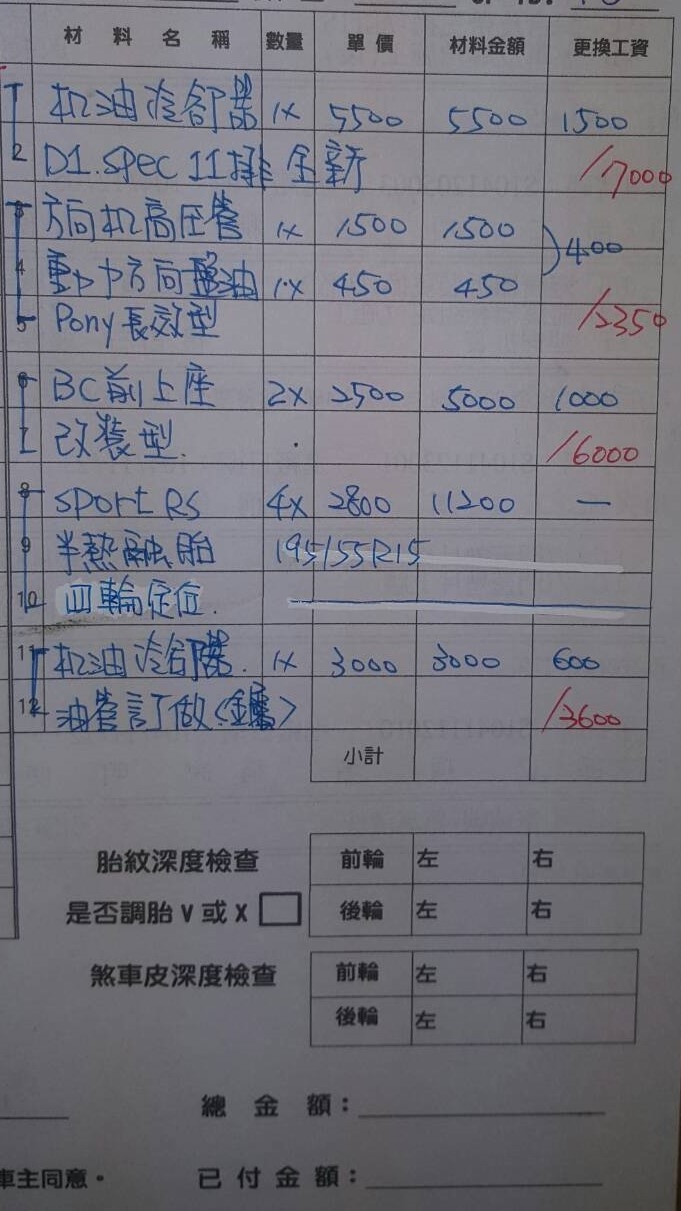 材料名稱 數量 單價 材料金額 更換工資
1 机油冷卻器 1x 5500 5500 1500
2 D1.spec 11排 全新 /7000
3 方向机高压管 1x 1500 1500 400
4 動力方向盤油 1x 450 450
5 Pony長效型 /2350
6 BC前上座 2x 2500 5000 1000
7 改裝型. /6000
8 sport RS 4x 2800 11200 —
9 半熱融胎 195/55R15
10 四輪定位.
11 机油冷卻器. 1x 3000 3000 600
12 油管訂做<金屬> /3600
小計
胎紋深度檢查 前輪 左 右
是否調胎 V 或 X 後輪 左 右
煞車皮深度檢查 前輪 左 右
後輪 左 右
總金額：
車主同意。 已付金額：